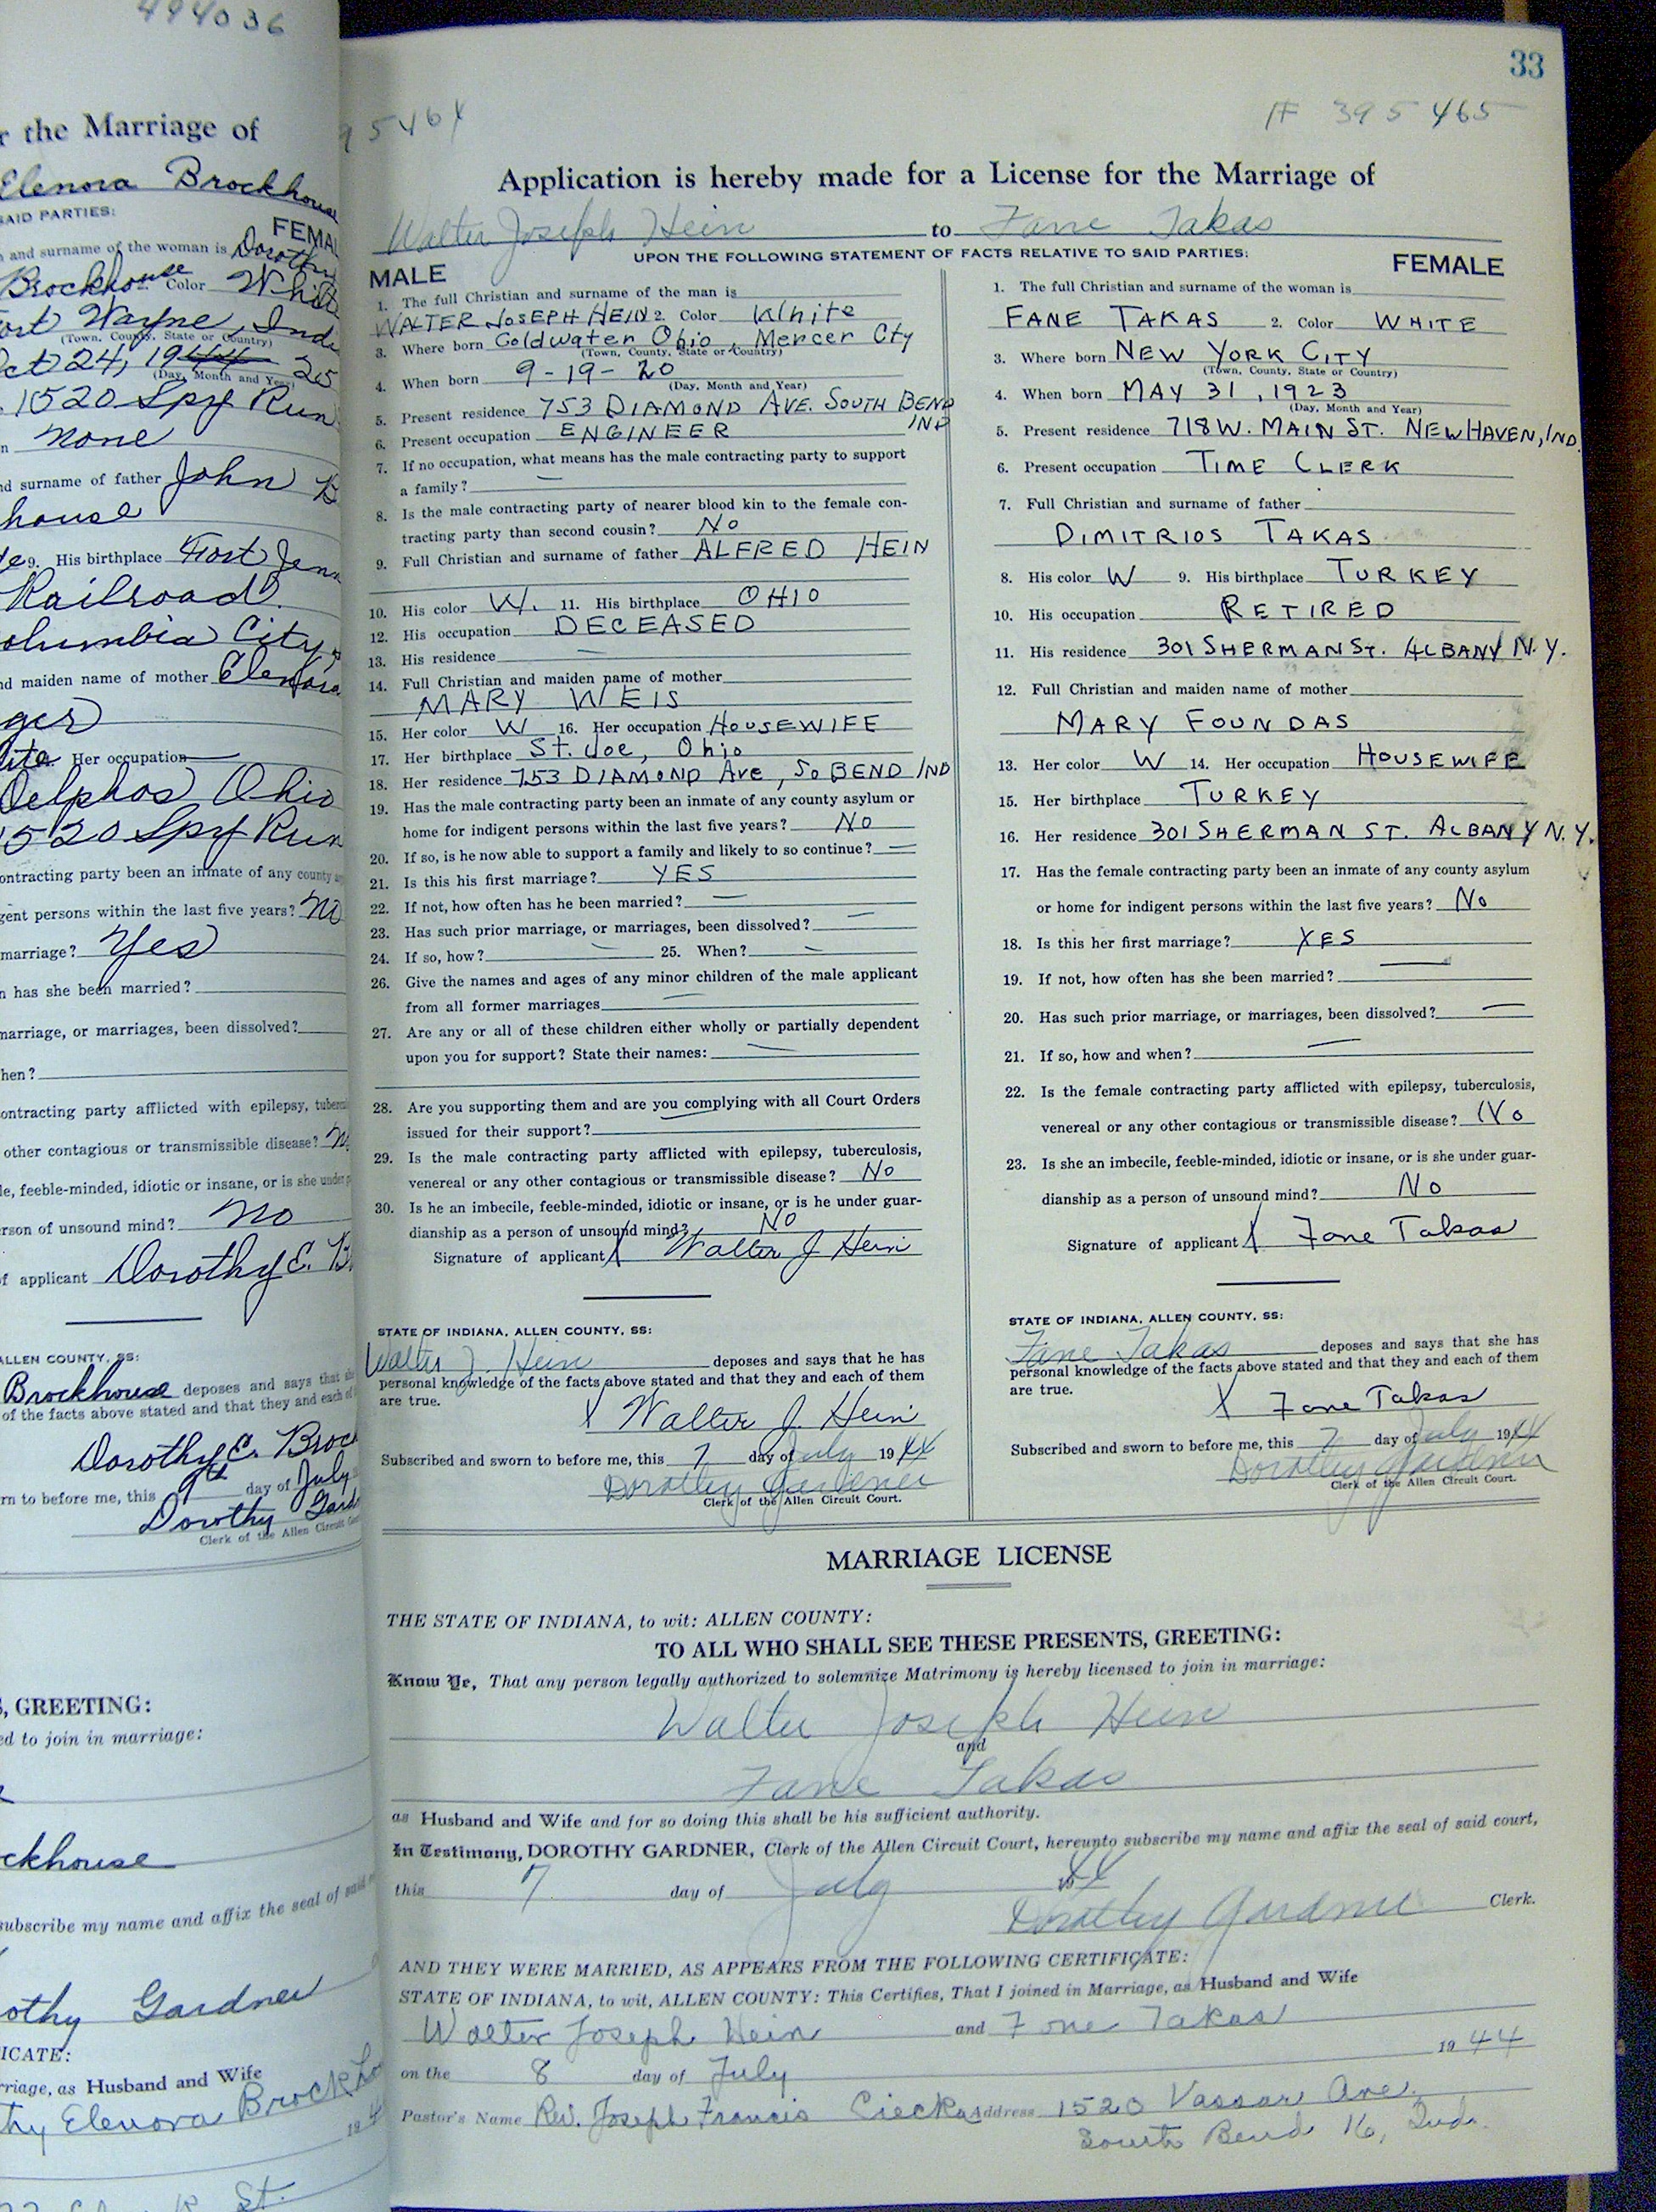 494036
r the Marriage of
Elenora Brockhouse
SAID PARTIES:
FEMA
and surname of the woman is Dorothy
Brockhouse Color White
ort Wayne, Ind
(Town, County, State or Country)
Oct 24, 1944 25
(Day, Month and Year)
1520 Spy Run
n none
nd surname of father John B
house
9. His birthplace Fort Jenn
Railroad.
olumbia City,
nd maiden name of mother Elenora
ger
ite Her occupation
Delphos Ohio
1520 Spy Run
ontracting party been an inmate of any county
gent persons within the last five years? No
marriage? Yes
n has she been married?
marriage, or marriages, been dissolved?
hen?
ontracting party afflicted with epilepsy, tuberc
other contagious or transmissible disease?
le, feeble-minded, idiotic or insane, or is she under
rson of unsound mind? no
f applicant Dorothy E. B
ALLEN COUNTY, SS:
Brockhouse deposes and says that
of the facts above stated and that they and each of
Dorothy E. Broc
rn to before me, this 9th day of July
Dorothy Gard
Clerk of the Allen Circuit
, GREETING:
ed to join in marriage:
ckhouse
subscribe my name and affix the seal of said
othy Gardner
ICATE:
rriage, as Husband and Wife
thy Elenora Brockho
St.
33
95464
# 395465
Application is hereby made for a License for the Marriage of
Walter Joseph Hein to Fane Takas
UPON THE FOLLOWING STATEMENT OF FACTS RELATIVE TO SAID PARTIES:
MALE
1. The full Christian and surname of the man is
WALTER JOSEPH HEIN 2. Color White
3. Where born Coldwater Ohio, Mercer Cty
(Town, County, State or Country)
4. When born 9-19-20
(Day, Month and Year)
5. Present residence 753 DIAMOND AVE. SOUTH BEND
IND
6. Present occupation ENGINEER
7. If no occupation, what means has the male contracting party to support
a family? —
8. Is the male contracting party of nearer blood kin to the female con-
tracting party than second cousin? No
9. Full Christian and surname of father ALFRED HEIN
10. His color W. 11. His birthplace OHIO
12. His occupation DECEASED
13. His residence —
14. Full Christian and maiden name of mother
MARY WEIS
15. Her color W 16. Her occupation HOUSEWIFE
17. Her birthplace St. Joe, Ohio
18. Her residence 753 DIAMOND Ave, So BEND IND
19. Has the male contracting party been an inmate of any county asylum or
home for indigent persons within the last five years? No
20. If so, is he now able to support a family and likely to so continue? —
21. Is this his first marriage? YES
22. If not, how often has he been married? —
23. Has such prior marriage, or marriages, been dissolved? —
24. If so, how? — 25. When? —
26. Give the names and ages of any minor children of the male applicant
from all former marriages —
27. Are any or all of these children either wholly or partially dependent
upon you for support? State their names: —
28. Are you supporting them and are you complying with all Court Orders
issued for their support? —
29. Is the male contracting party afflicted with epilepsy, tuberculosis,
venereal or any other contagious or transmissible disease? No
30. Is he an imbecile, feeble-minded, idiotic or insane, or is he under guar-
dianship as a person of unsound mind? No
Signature of applicant X Walter J Hein
STATE OF INDIANA, ALLEN COUNTY, SS:
Walter J. Hein deposes and says that he has
personal knowledge of the facts above stated and that they and each of them
are true.
X Walter J. Hein
Subscribed and sworn to before me, this 7 day of July 1944
Dorothy Gardner
Clerk of the Allen Circuit Court.
FEMALE
1. The full Christian and surname of the woman is
FANE TAKAS 2. Color WHITE
3. Where born NEW YORK CITY
(Town, County, State or Country)
4. When born MAY 31, 1923
(Day, Month and Year)
5. Present residence 718 W. MAIN ST. NEW HAVEN, IND.
6. Present occupation TIME CLERK
7. Full Christian and surname of father
DIMITRIOS TAKAS
8. His color W 9. His birthplace TURKEY
10. His occupation RETIRED
11. His residence 301 SHERMAN ST. ALBANY N.Y.
12. Full Christian and maiden name of mother
MARY FOUNDAS
13. Her color W 14. Her occupation HOUSEWIFE
15. Her birthplace TURKEY
16. Her residence 301 SHERMAN ST. ALBANY N.Y.
17. Has the female contracting party been an inmate of any county asylum
or home for indigent persons within the last five years? No
18. Is this her first marriage? YES
19. If not, how often has she been married? —
20. Has such prior marriage, or marriages, been dissolved? —
21. If so, how and when? —
22. Is the female contracting party afflicted with epilepsy, tuberculosis,
venereal or any other contagious or transmissible disease? No
23. Is she an imbecile, feeble-minded, idiotic or insane, or is she under guar-
dianship as a person of unsound mind? No
Signature of applicant X Fane Takas
STATE OF INDIANA, ALLEN COUNTY, SS:
Fane Takas deposes and says that she has
personal knowledge of the facts above stated and that they and each of them
are true.
X Fane Takas
Subscribed and sworn to before me, this 7 day of July 1944
Dorothy Gardner
Clerk of the Allen Circuit Court.
MARRIAGE LICENSE
THE STATE OF INDIANA, to wit: ALLEN COUNTY:
TO ALL WHO SHALL SEE THESE PRESENTS, GREETING:
Know Ye, That any person legally authorized to solemnize Matrimony is hereby licensed to join in marriage:
Walter Joseph Hein
and
Fane Takas
as Husband and Wife and for so doing this shall be his sufficient authority.
In Testimony, DOROTHY GARDNER, Clerk of the Allen Circuit Court, hereunto subscribe my name and affix the seal of said court,
this 7 day of July 1944
Dorothy Gardner Clerk.
AND THEY WERE MARRIED, AS APPEARS FROM THE FOLLOWING CERTIFICATE:
STATE OF INDIANA, to wit, ALLEN COUNTY: This Certifies, That I joined in Marriage, as Husband and Wife
Walter Joseph Hein and Fane Takas
on the 8 day of July 1944
Pastor's Name Rev. Joseph Francis Ciecka Address 1520 Vassar Ave.
South Bend 16, Ind.